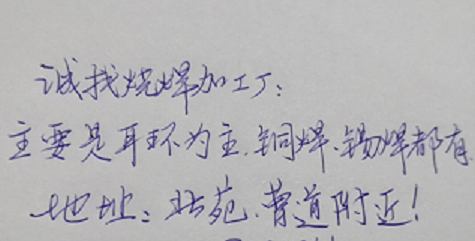 诚找烧焊加工厂:
主要是耳环为主.铜焊.锡焊都有
地址:北苑.曹道附近!